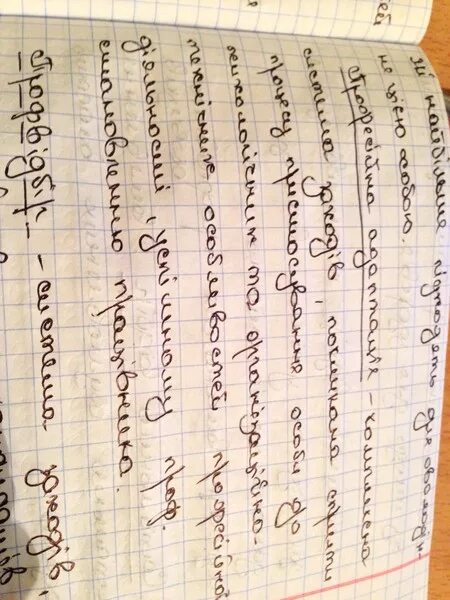 їй найбільше підходять для оволодін-
не цією особою.
Професійна адаптація – комплексна
система заходів, покликана сприяти
процесу пристосування особи до
психологічних та організаційно-
технічних особливостей професійної
діяльності, успішному проф.
становленню працівника.
Профвідбір – система заходів,